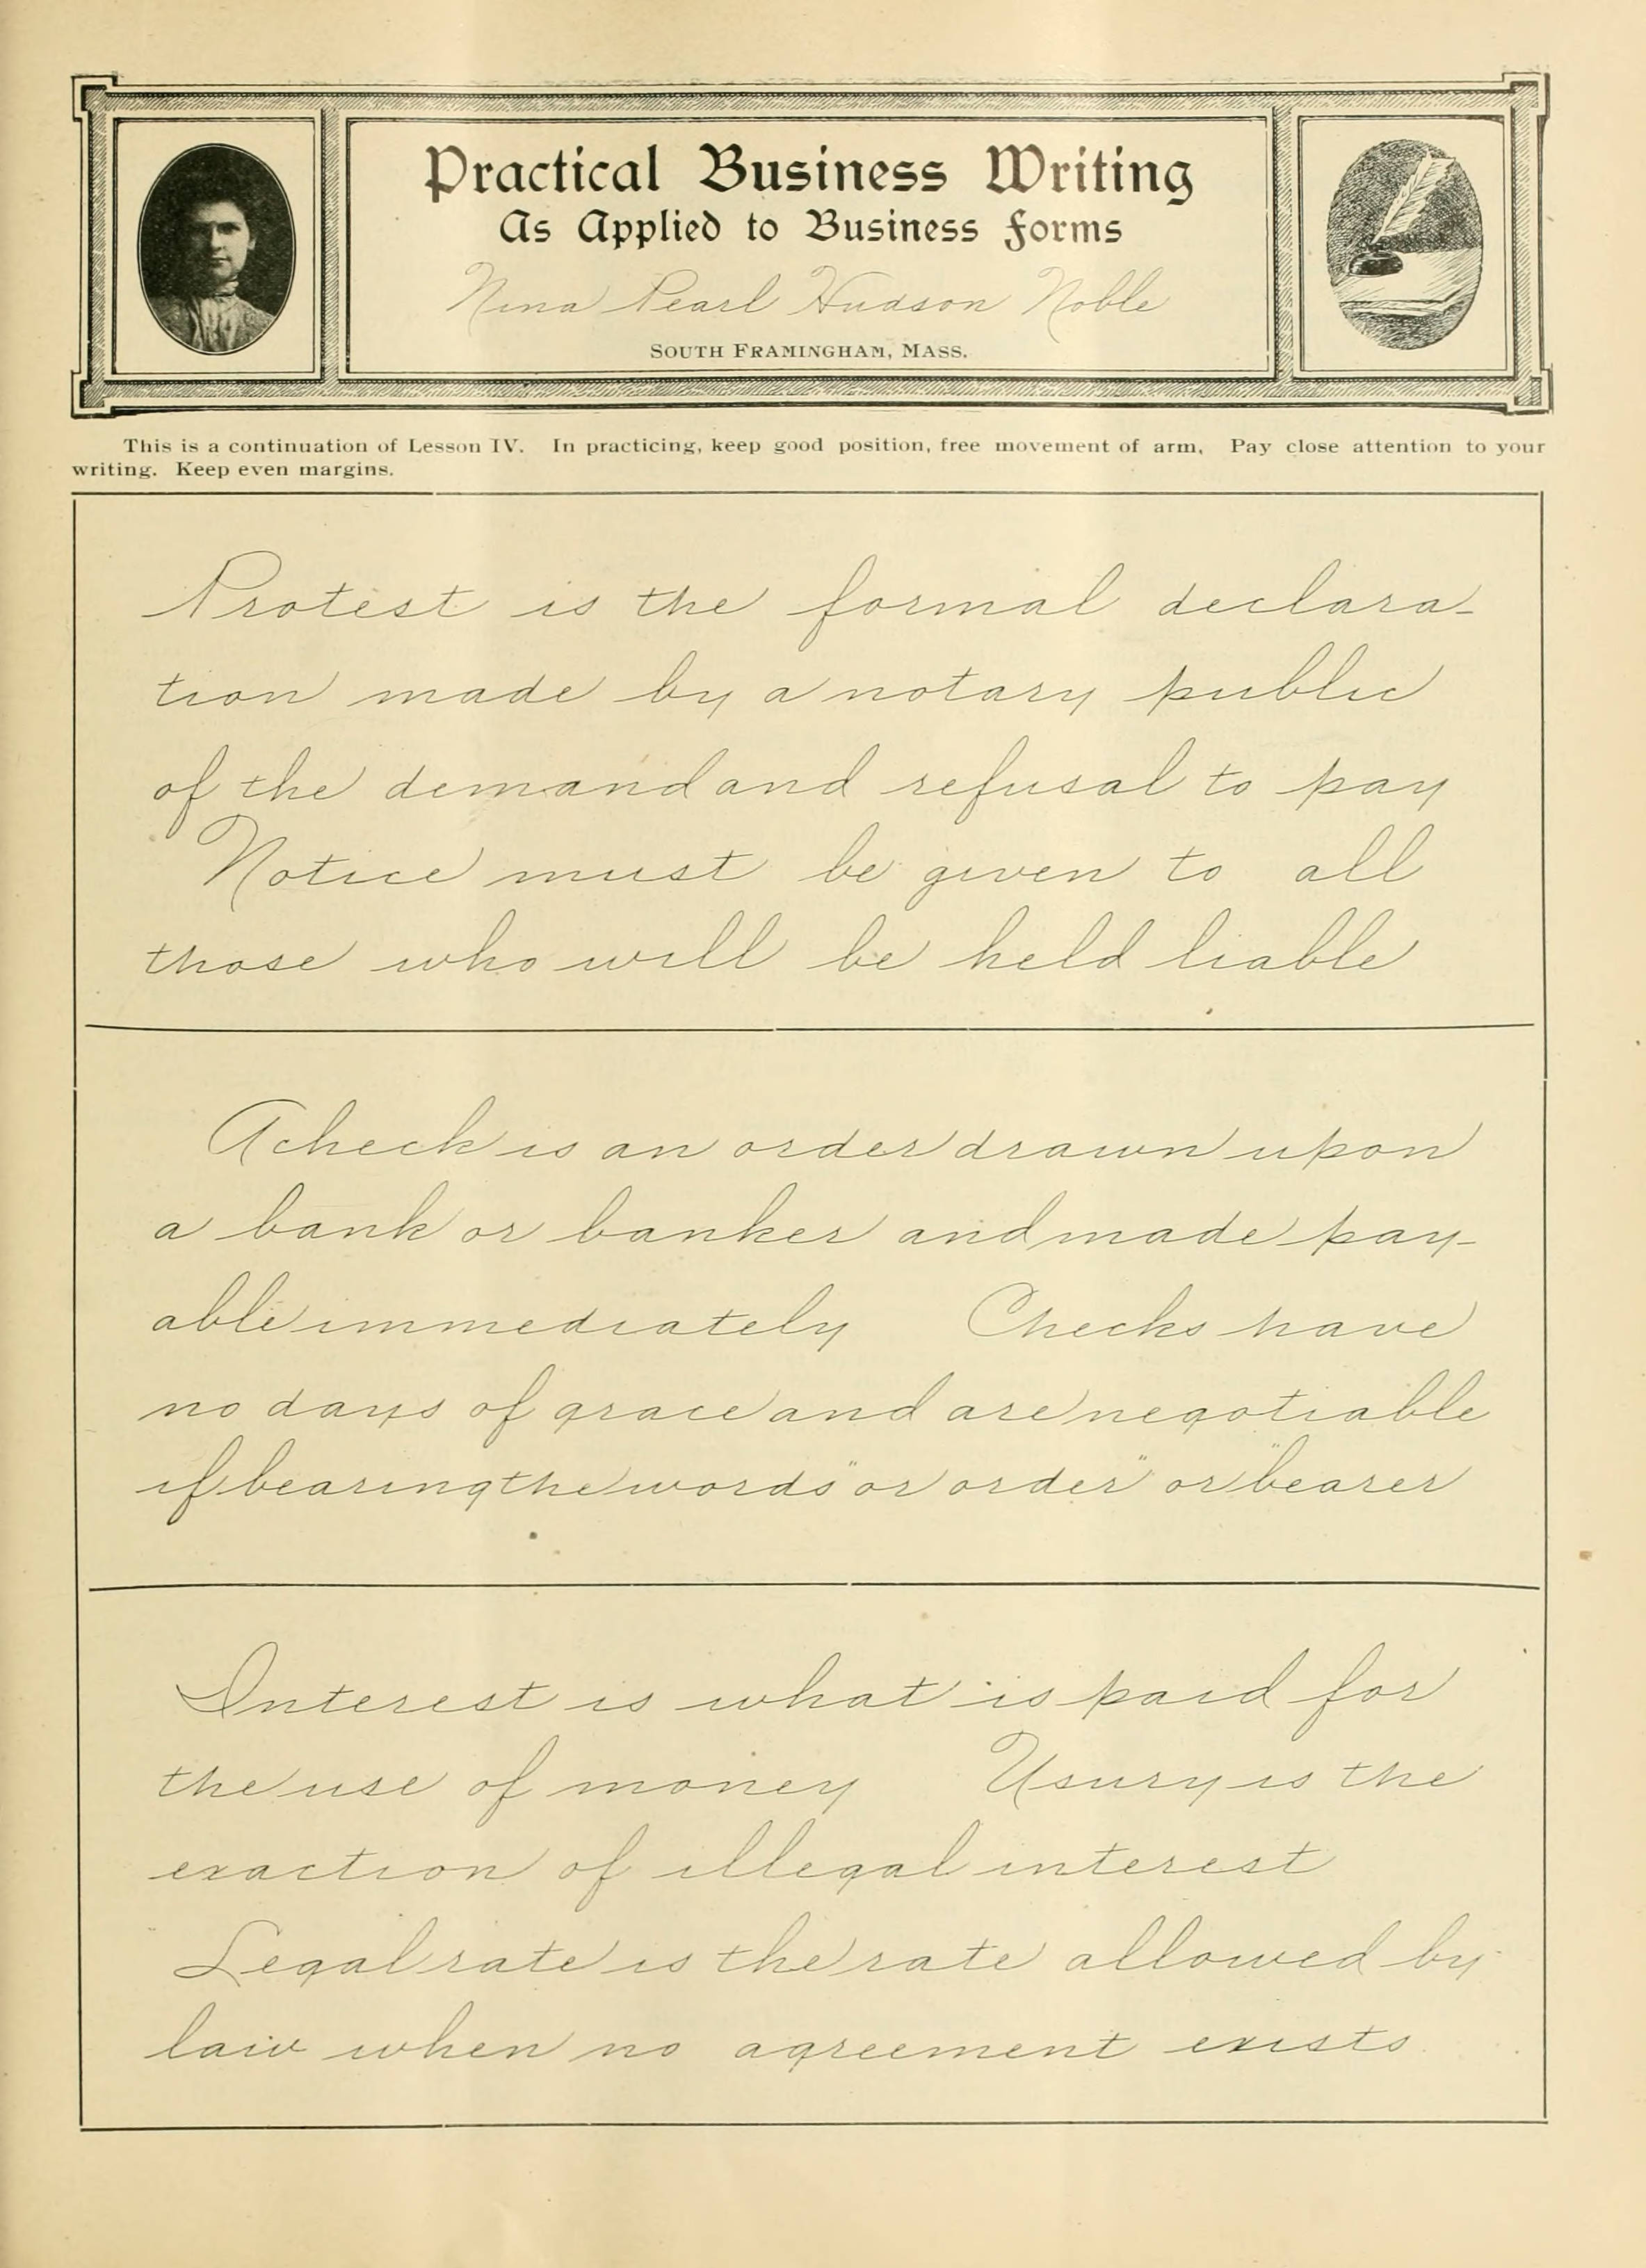 Practical Business Writing
As Applied to Business Forms
Nina Pearl Hudson Noble
SOUTH FRAMINGHAM, MASS.
This is a continuation of Lesson IV. In practicing, keep good position, free movement of arm, Pay close attention to your
writing. Keep even margins.
Protest is the formal declara-
tion made by a notary public
of the demand and refusal to pay
Notice must be given to all
those who will be held liable
A check is an order drawn upon
a bank or banker and made pay-
able immediately Checks have
no days of grace and are negotiable
if bearing the words "or order" or "bearer
Interest is what is paid for
the use of money Usury is the
exaction of illegal interest
Legal rate is the rate allowed by
law when no agreement exists